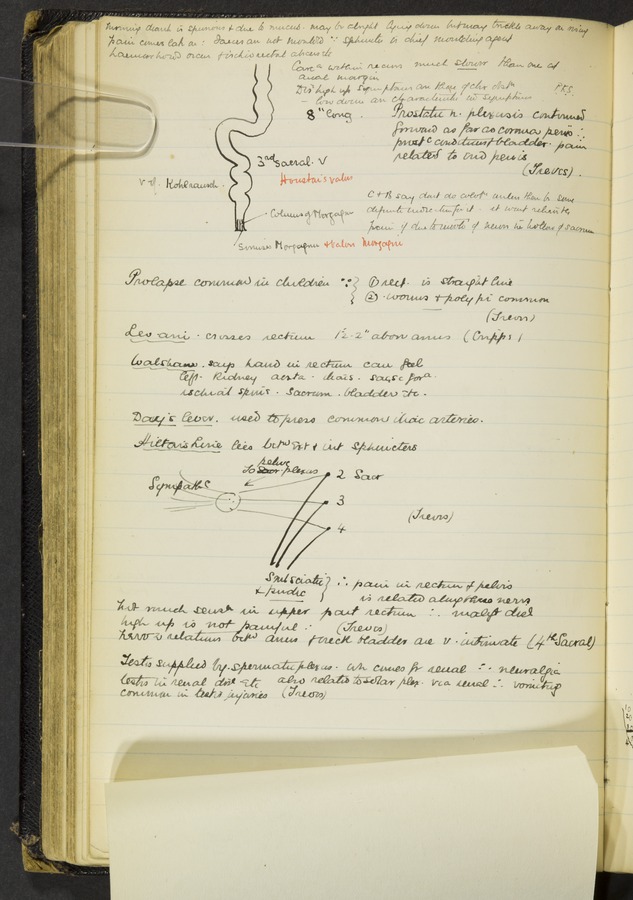 morning diarrh is spurious & due to mucus. may be alright lying down but may trickle away on rising
pain comes late on : Faeces are not moulded ∵ sphincter is chief moulding agent
haemorrhoid occur & ischiorectal abscess
Carc^a within rectum much slower than one of
anal margin
Dis high up symptoms are those of chr obst^n
- low down are characteristic
8" long.
Prostatic n. plexus is continued
forward as far as corona penis ∴
prost^c conditions & bladder pain
related to end penis
(Treves).
3rd Sacral. V
Houston's valves
v of. Kohlrausch.
C & B say dont do colot^y unless there be some
definite indic. for it. it wont relieve
pain if due to involv^t of nerves in hollow of sacrum
Columns of Morgagni
Sinuses Morgagni & valves Morgagni
Prolapse common in children ∵ } ① rect. is straight line
② worms & polypi common
(Treves)
Lev ani. crosses rectum 1½-2" above anus (Cripps)
Walsham. says hand in rectum can feel
left Kidney aorta. iliacs. sacrosc for^a.
ischial spines. Sacrum. bladder etc.
Davy's lever. used to press common iliac arteries.
Hilton's Line lies betw^n Ext & int Sphincters
to pelvic plexus
Sympathe^c
2 Sacr
3
4
(Treves)
Smll sciatic
& pudic } ∴ pain in rectum & pelvis
is related along these nerves
Not much sens^n in upper part rectum ∴ malig^t dis^e
high up is not painful ∴ (Treves)
nerve relations betw^n anus & neck bladder are v. intimate (4th Sacral)
Testis supplied by spermatic plexus. wh comes fr renal ∴ neuralgia
testis in renal dis^e etc also related to solar plex. via renal ∴ vomiting
common in testis injuries (Treves)